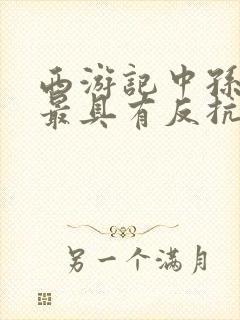 西游记中孙
最具有反抗
另一个满月